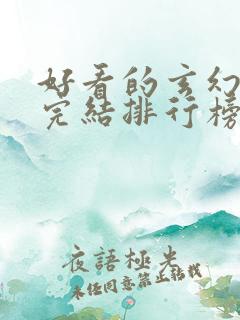 好看的玄幻
完結排行榜
夜語極光
未经同意禁止转载